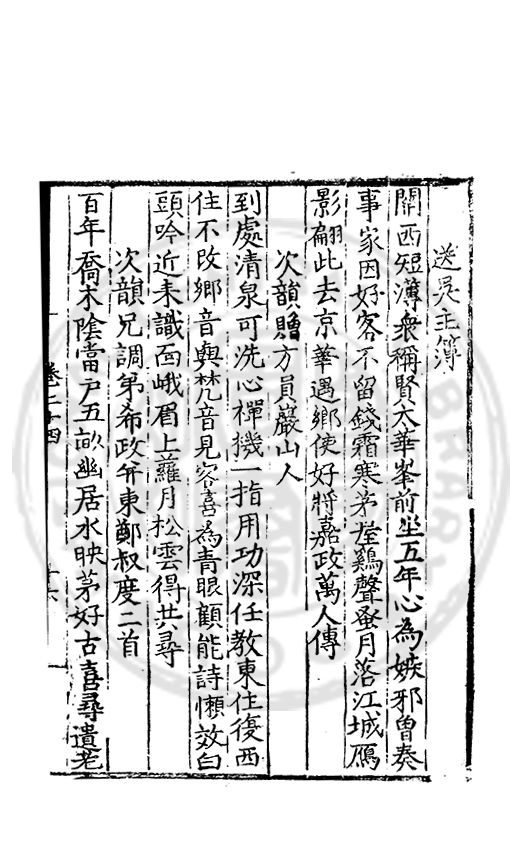 送吴主簿
關西短簿衆稱賢太華峯前坐五年心為嫉邪曾奏
事家因好客不留錢霜寒茅店鷄聲蚤月落江城鴈
影翩此去京華遇鄉使好將嘉政萬人傳
次韻贈方員巖山人
到處清泉可洗心禪機一指用功深任教東住復西
住不改鄉音與梵音見客喜為青眼顧能詩懶效白
頭吟近来識面峨眉上蘿月松雲得共尋
次韻兄調第希政并柬鄭叔度二首
百年喬木陰當户五畝幽居水映茅好古喜尋遺老
卷二十四
十六